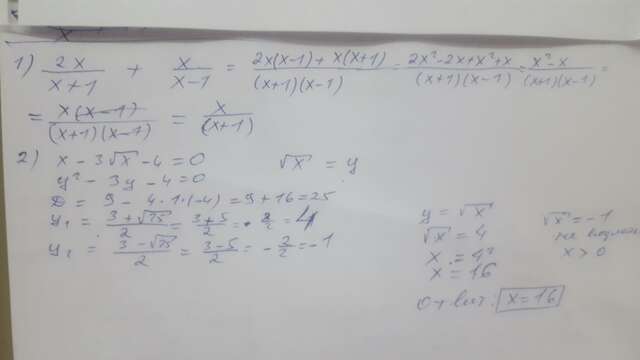 1) 2x/(x+1) + x/(x-1) = (2x(x-1) + x(x+1))/((x+1)(x-1)) = (2x²-2x+x²+x)/((x+1)(x-1)) = (x²-x)/((x+1)(x-1)) =
= x(x-1)/((x+1)(x-1)) = x/(x+1)
2) x - 3√x - 4 = 0 √x = y
y² - 3y - 4 = 0
D = 9 - 4·1·(-4) = 9 + 16 = 25
y₁ = (3+√25)/2 = (3+5)/2 = 8/2 = 4
y₂ = (3-√25)/2 = (3-5)/2 = -2/2 = -1
y = √x
√x = 4
x = 4²
x = 16
Ответ: x = 16
√x = -1
не
x > 0